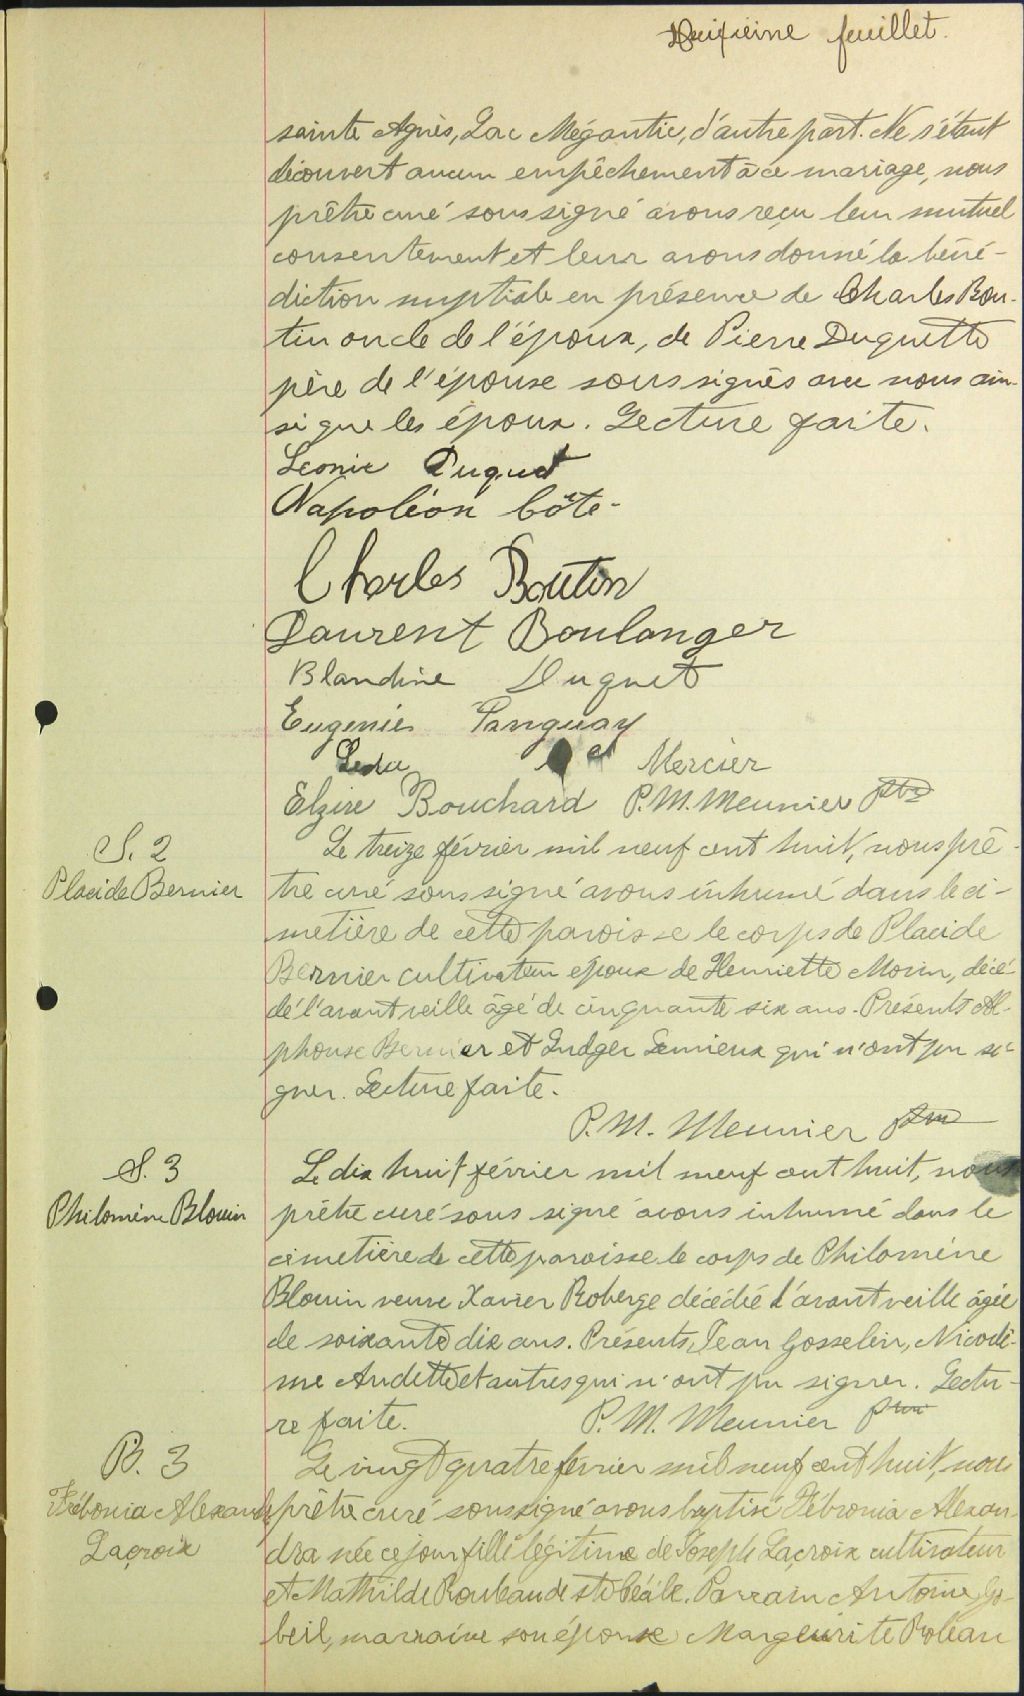 Deuxième feuillet.
sainte Agnès, Lac Mégantic, d'autre part. Ne s'étant
découvert aucun empêchement à ce mariage, nous
prêtre curé soussigné avons reçu leur mutuel
consentement et leur avons donné la béné-
diction nuptiale en présence de Charles Bou-
tin oncle de l'époux, de Pierre Duquette
père de l'épouse soussignés avec nous ain-
si que les époux. Lecture faite.
Leonie Duquet
Napoléon Côté-
Charles Boutin
Laurent Boulanger
Blandine Duquet
Eugenie Tanguay
Leda Mercier
Elzire Bouchard P. M. Meunier ptre
S. 2
Placide Bernier
Le treize février mil neuf cent huit, nous prê-
tre curé soussigné avons inhumé dans le ci-
metière de cette paroisse le corps de Placide
Bernier cultivateur époux de Henriette Morin, décé-
dé l'avant veille âgé de cinquante six ans. Présents Al-
phonse Bernier et Ludger Lemieux qui n'ont pu si-
gner. Lecture faite.
P. M. Meunier ptre
S. 3
Philomène Blouin
Le dix huit février mil neuf cent huit, nous
prêtre curé sous signé avons inhumé dans le
cimetière de cette paroisse le corps de Philomène
Blouin veuve Xavier Roberge décédée l'avant veille âgée
de soixante dix ans. Présents, Jean Gosselin, Nicodè-
me Audette et autres qui n'ont pu signer. Lectu-
re faite. P. M. Meunier ptre
B. 3
Fébronia Alexandra
Lacroix
Le vingt quatre février mil neuf cent huit, nous
prêtre curé soussigné avons baptisé Fébronia Alexan-
dra née ce jour fille légitime de Joseph Lacroix cultivateur
et Mathilde Rouleau de Ste Cécile. Parrain Antoine Go-
beil, marraine son épouse Marguerite Roleau